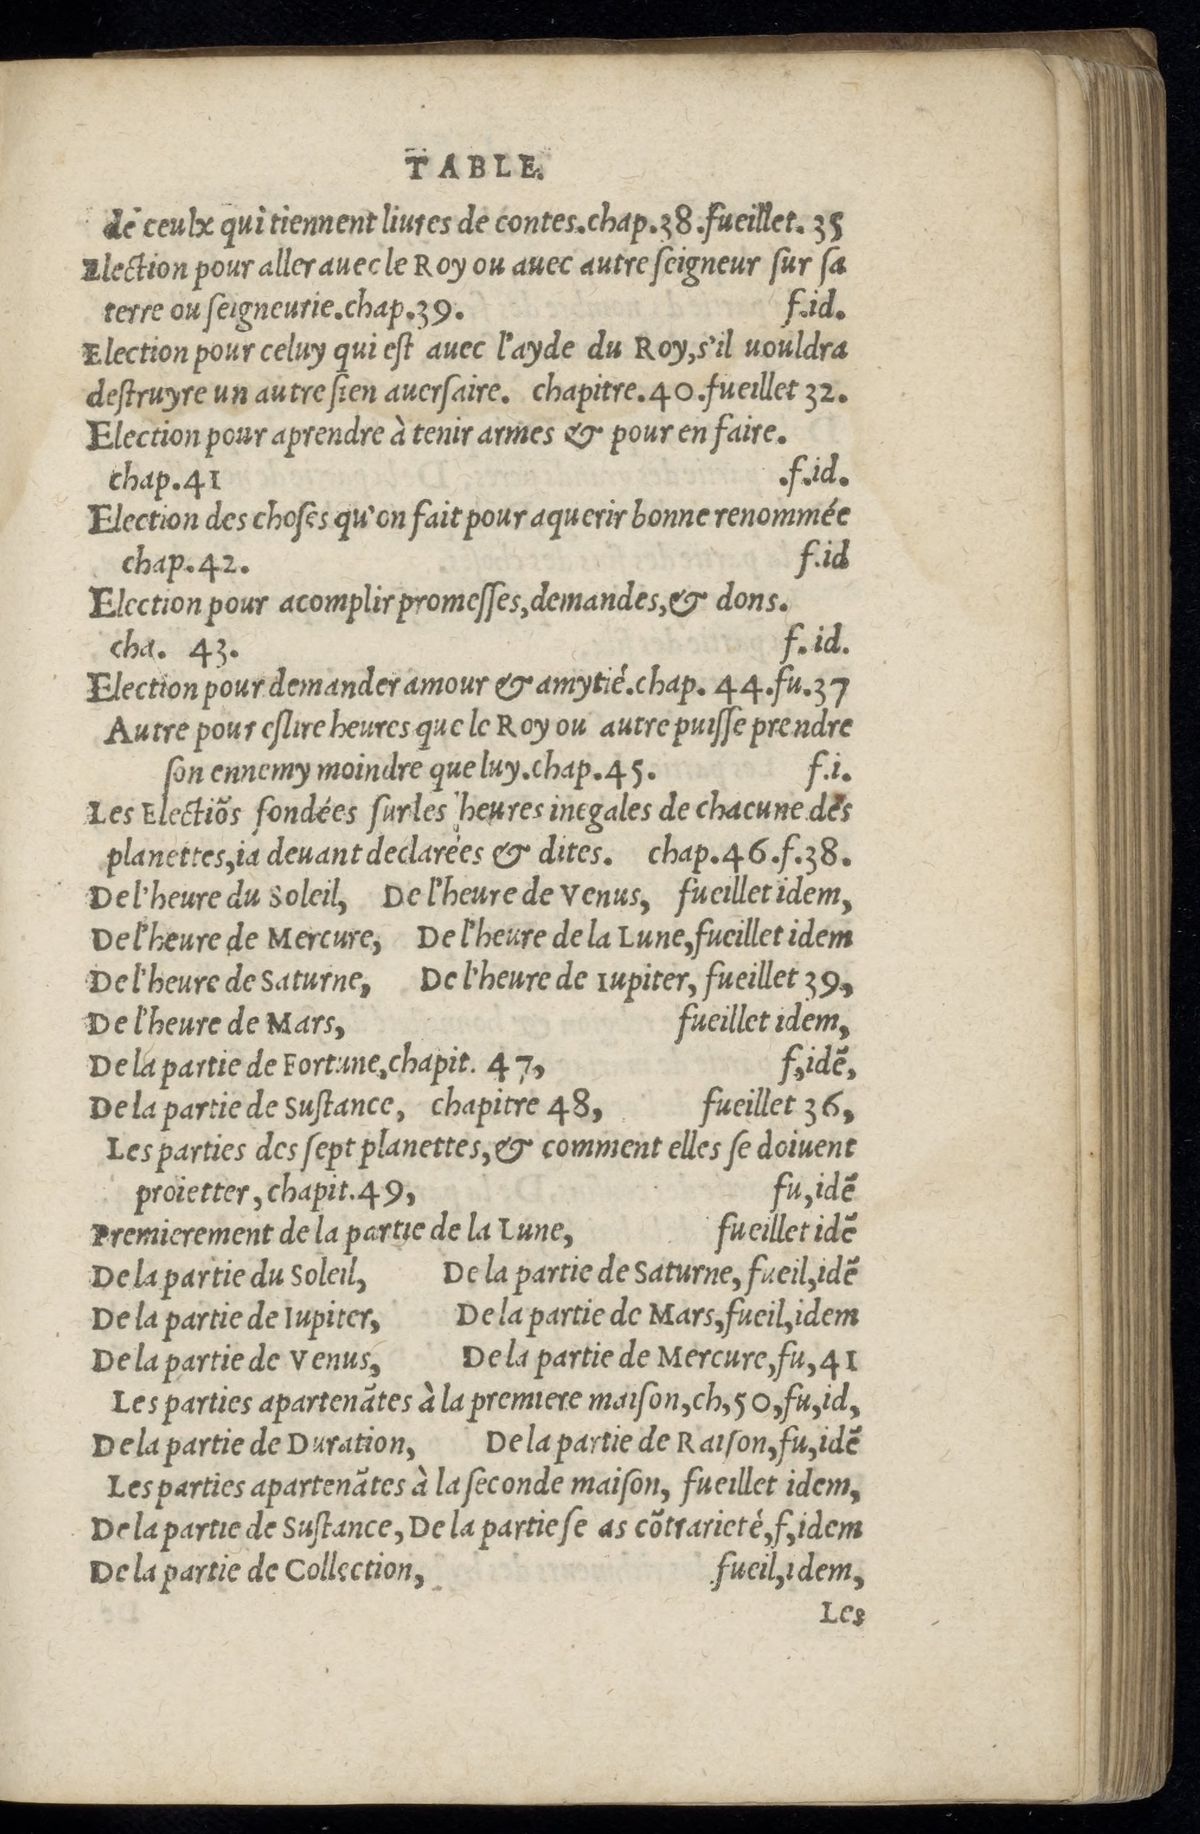 TABLE.
de ceulx qui tiennent liures de contes.chap.38.fueillet. 35
Election pour aller auec le Roy ou auec autre seigneur sur sa
terre ou seigneurie.chap.39. f.id.
Election pour celuy qui est auec l'ayde du Roy,s'il uouldra
destruyre un autre sien auersaire. chapitre.40.fueillet 32.
Election pour aprendre à tenir armes & pour en faire.
chap.41 .f.id.
Election des choses qu'on fait pour aquerir bonne renommée
chap.42. f.id
Election pour acomplir promesses,demandes,& dons.
cha. 43. f. id.
Election pour demander amour & amytié.chap. 44.fu.37
Autre pour eslire heures que le Roy ou autre puisse prendre
son ennemy moindre que luy.chap.45. f.i.
Les Electiõs fondées sur les heures inegales de chacune des
planettes,ia deuant declarées & dites. chap.46.f.38.
De l'heure du Soleil, De l'heure de Venus, fueillet idem,
De l'heure de Mercure, De l'heure de la Lune,fueillet idem
De l'heure de Saturne, De l'heure de Iupiter, fueillet 39,
De l'heure de Mars, fueillet idem,
De la partie de Fortune,chapit. 47, f,idẽ,
De la partie de Sustance, chapitre 48, fueillet 36,
Les parties des sept planettes,& comment elles se doiuent
proietter, chapit.49, fu,idẽ
Premierement de la partie de la Lune, fueillet idẽ
De la partie du Soleil, De la partie de Saturne, fueil,idẽ
De la partie de Iupiter, De la partie de Mars,fueil,idem
De la partie de Venus, De la partie de Mercure,fu,41
Les parties apartenãtes à la premiere maison,ch,50,fu,id,
De la partie de Duration, De la partie de Raison,fu,idẽ
Les parties apartenãtes à la seconde maison, fueillet idem,
De la partie de Sustance, De la partie se as cõtrarieté,f,idem
De la partie de Collection, fueil,idem,
Les